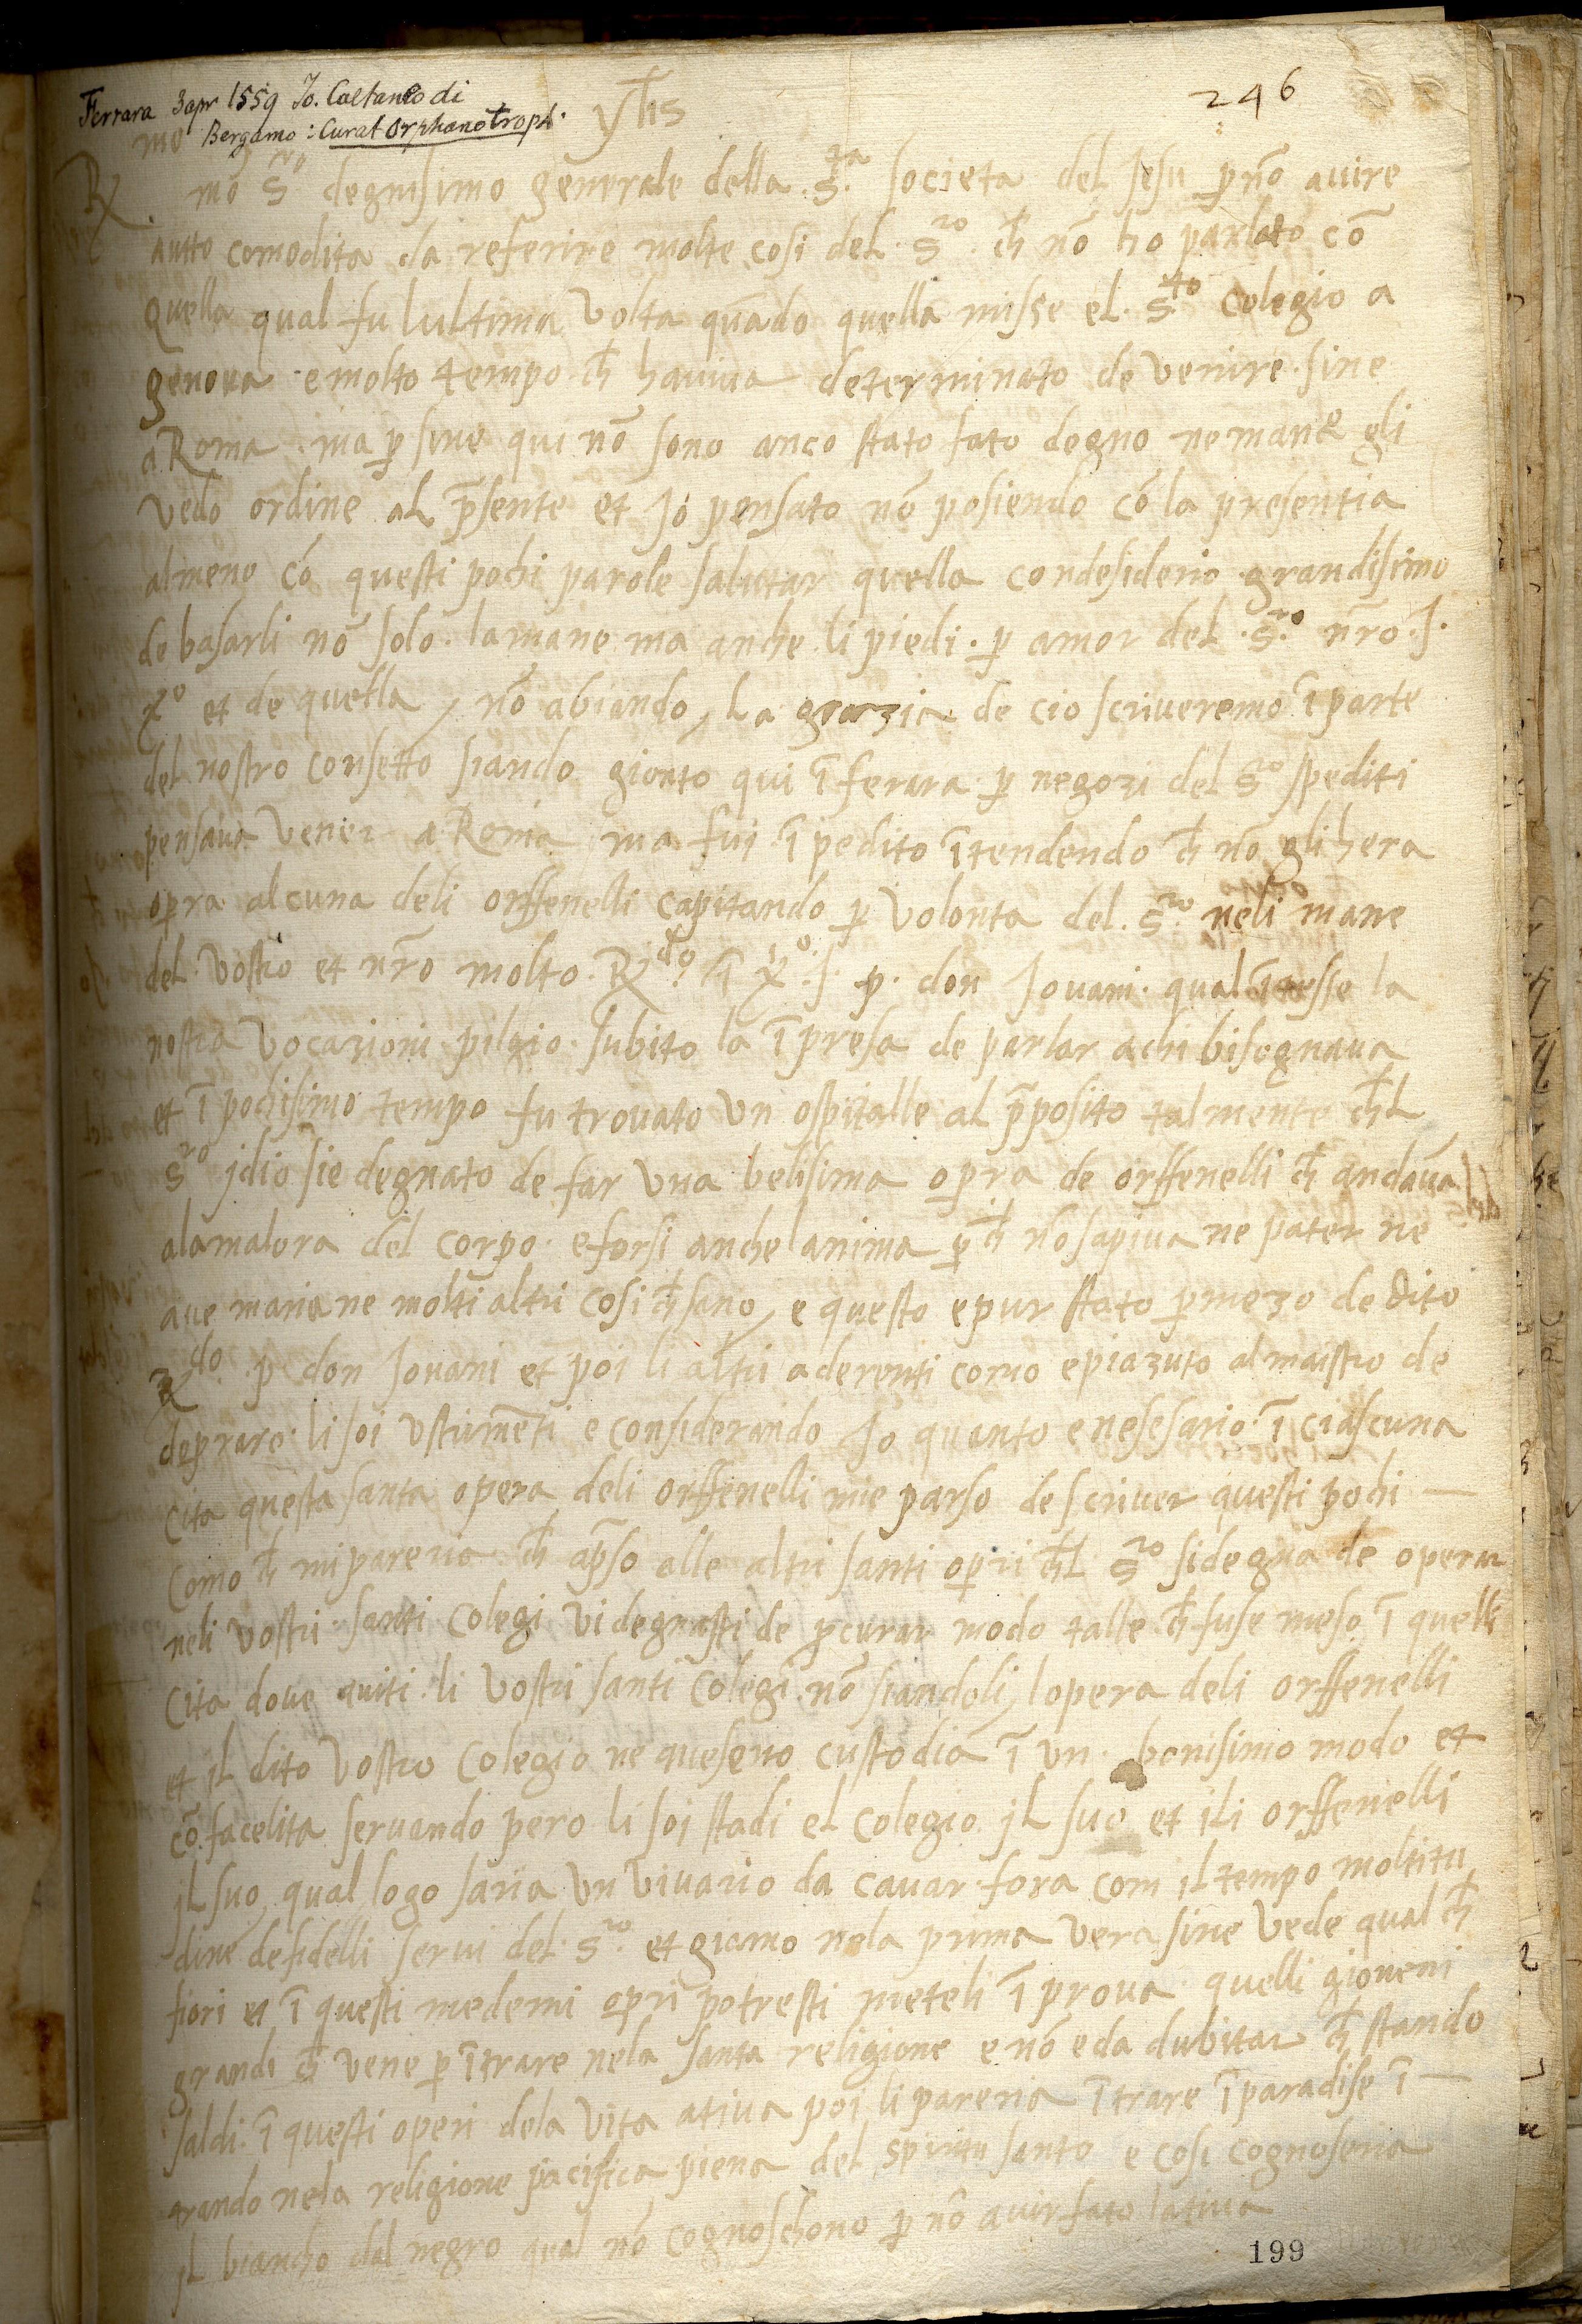 Ferrara 3 apr 1559 Jo. Caetaneo di
Bergamo : Curat Orphanotroph.
yhs
246
R.mo mo S.ro degnisimo generale della .S.ta societa del Jesu p nõ avire
autto comodita da referire molte cosi del .S.ro. ch̃ nõ ho parlato cõ
quella qual fu lultima volta quãdo quella misse el .S.to colegio a
genova e molto tempo ch̃ haviva determinato de venire sine
a Roma . ma p sine qui nõ sono anco stato fato degno ne manc̃ gli
vedo ordine al p̃sente et Jo pensato nõ posiendo cõ la presentia
almeno cõ questi pochi parole salutar quella con desiderio grandisimo
de basarli nõ solo . la mane ma anche li piedi . p amor del .S.ro nr̃o .J.
X.o et de quella / nõ abiando / La grazia de cio scriveremo ĩ parte
del nostro consetto siando gionto qui ĩ ferara p negozi del S.ro spediti
pensava vener a Roma ma fui ĩpedito ĩtendendo ch̃ nõ gli hera
opra alcuna deli orffenelli capitando p volonta del .S.ro neli mane
del vostro et nr̃o molto . R.do ĩ X.o J. p. don Jovani . qual ĩtesse la
nostra vocazioni pilgio subito la ĩpresa de parlar a chi bisognava
et ĩ pochisimo tempo fu trovato un ospitalle al p̃posito talmente ch̃L
S.ro jdio sie degnato de far una belisima opra de orffenelli ch̃ andava
ala malora del corpo . e forsi anche lanima p ch̃ nõ sapiva ne pater ne
ave maria ne molti altri cosi ch̃ sano / e questo e pur stato p mezo de dito
R.do p don Jovani et poi li altri aderenti como e piazuto al maistro de
deprare . li soi ustrimẽti e considerando Jo quanto e nesesario . ĩ ciascuna
cita questa santa opera deli orffenelli mie parso de scriver questi pochi —
como ch̃ mi pareria ch̃ apr̃so alle altri santi opri ch̃L S.ro si degna de operar
neli vostri santi colegi vi degnasti de pcurar modo talle ch̃ fuse meso ĩ quelli
cita dove aviti . li vostri santi colegi nõ siandoli / lopera deli orffenelli
et jL dito vostro colegio ne aveseno custodia ĩ un . bonisimo modo et
cõ facelita servando pero li soi stadi el colegio jL suo et jli orffenelli
jL suo / qual logo saria un vivario da cavar fora com jL tempo moltitu
dine de fidelli servi del .S.ro. et giamo nela prima vera sine vede qual ch̃
fiori et ĩ questi medemi opri potresti meteli ĩ prova quelli gioveni
grandi ch̃ vene p ĩtrare nela santa religione e nõ e da dubitar ch̃ stando
saldi . ĩ questi operi dela vita ativa poi li pareria ĩtrare ĩ paradise ĩ —
trando nela religione pacifica piena del spiritu santo e cosi cognoseria
jL biancho dal negro qual nõ cognoschono p nõ avir fato lativa
199